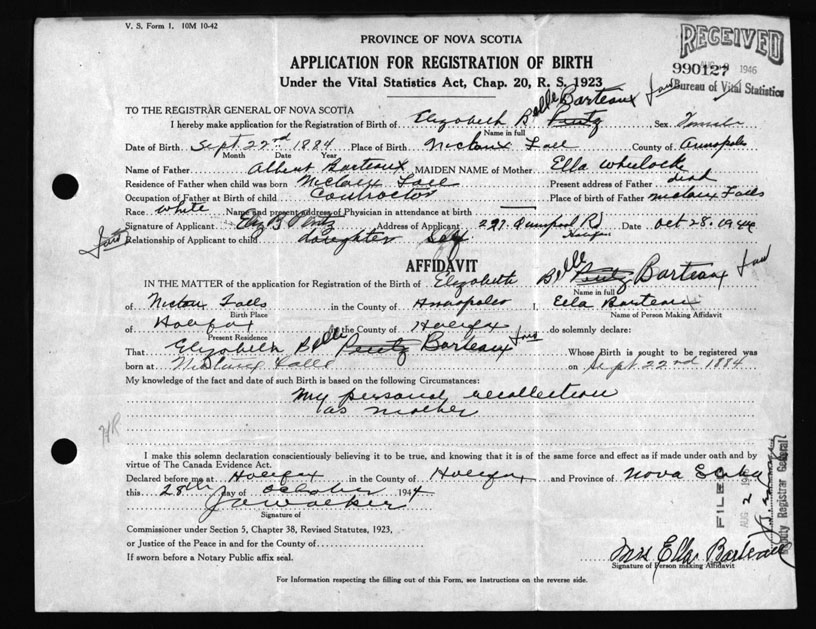 V. S. Form 1. 10M 10-42
PROVINCE OF NOVA SCOTIA
RECEIVED
APPLICATION FOR REGISTRATION OF BIRTH
990127 1946
Under the Vital Statistics Act, Chap. 20, R. S. 1923
Bureau of Vital Statistics
TO THE REGISTRAR GENERAL OF NOVA SCOTIA
I hereby make application for the Registration of Birth of Elizabeth Belle Barteaux Pentz Sex Female
Name in full
Date of Birth Sept. 22nd 1884 Place of Birth Nictaux Fall County of Annapolis
Month Date Year
Name of Father Albert Barteaux MAIDEN NAME of Mother Ella Wheelock
Residence of Father when child was born Nictaux Fall Present address of Father died
Occupation of Father at Birth of child Contractor Place of birth of Father Nictaux Falls
Race White Name and present address of Physician in attendance at birth
Signature of Applicant Eliz B Pentz Address of Applicant 297 Quinpool Rd Halifax Date Oct 28. 1944
Relationship of Applicant to child daughter Self
AFFIDAVIT
IN THE MATTER of the application for Registration of the Birth of Elizabeth Belle Pentz Barteaux
Name in full
of Nictaux Falls in the County of Annapolis I, Ella Barteaux
Birth Place Name of Person Making Affidavit
of Halifax in the County of Halifax do solemnly declare:
Present Residence
That Elizabeth Belle Pentz Barteaux Whose Birth is sought to be registered was
born at Nictaux Falls on Sept. 22nd 1884
My knowledge of the fact and date of such Birth is based on the following Circumstances:
My personal recollection
as mother
I make this solemn declaration conscientiously believing it to be true, and knowing that it is of the same force and effect as if made under oath and by
virtue of The Canada Evidence Act.
Declared before me at Halifax in the County of Halifax and Province of Nova Scotia
this 28th day of October 1944
Signature of
FILED
AUG 2
Deputy Registrar General
Commissioner under Section 5, Chapter 38, Revised Statutes, 1923,
or Justice of the Peace in and for the County of
If sworn before a Notary Public affix seal.
Mrs Ella Barteaux
Signature of Person making Affidavit
For Information respecting the filling out of this Form, see Instructions on the reverse side.